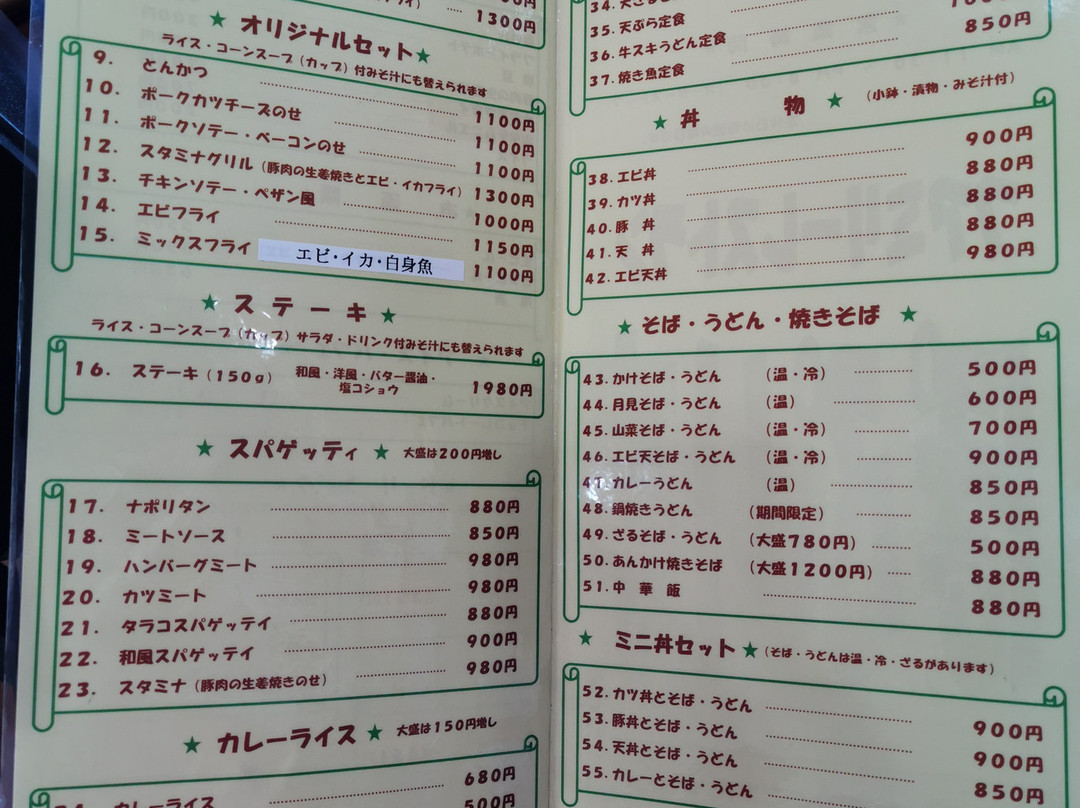 1300円
★ オリジナルセット ★
ライス・コーンスープ（カップ）付みそ汁にも替えられます
9. とんかつ 1100円
10. ポークカツチーズのせ 1100円
11. ポークソテー・ベーコンのせ 1100円
12. スタミナグリル（豚肉の生姜焼きとエビ・イカフライ） 1300円
13. チキンソテー・ペザン風 1000円
14. エビフライ 1150円
15. ミックスフライ エビ・イカ・白身魚 1100円
★ ステーキ ★
ライス・コーンスープ（カップ）サラダ・ドリンク付みそ汁にも替えられます
16. ステーキ（150g） 和風・洋風・バター醤油・ 1980円
塩コショウ
★ スパゲッティ ★ 大盛は200円増し
17. ナポリタン 880円
18. ミートソース 850円
19. ハンバーグミート 980円
20. カツミート 980円
21. タラコスパゲッテイ 880円
22. 和風スパゲッテイ 900円
23. スタミナ（豚肉の生姜焼きのせ） 980円
★ カレーライス ★ 大盛は150円増し
680円
カレーライス 500円
35. 天ぷら定食
36. 牛スキうどん定食 850円
37. 焼き魚定食
★ 丼 物 ★ （小鉢・漬物・みそ汁付）
38. エビ丼 900円
39. カツ丼 880円
40. 豚 丼 880円
41. 天 丼 880円
42. エビ天丼 980円
★ そば・うどん・焼きそば ★
43. かけそば・うどん （温・冷） 500円
44. 月見そば・うどん （温） 600円
45. 山菜そば・うどん （温・冷） 700円
46. エビ天そば・うどん （温・冷） 900円
47. カレーうどん （温） 850円
48. 鍋焼きうどん （期間限定） 850円
49. ざるそば・うどん （大盛780円） 500円
50. あんかけ焼きそば （大盛1200円） 880円
51. 中 華 飯 880円
★ ミニ丼セット ★ （そば・うどんは温・冷・ざるがあります）
52. カツ丼とそば・うどん 900円
53. 豚丼とそば・うどん 900円
54. 天丼とそば・うどん 850円
55. カレーとそば・うどん